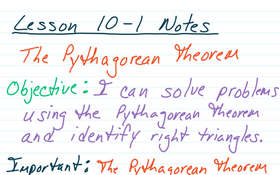 Lesson 10-1 Notes
The Pythagorean Theorem
Objective: I can solve problems
using the Pythagorean Theorem
and identify right triangles.
Important: The Pythagorean Theorem